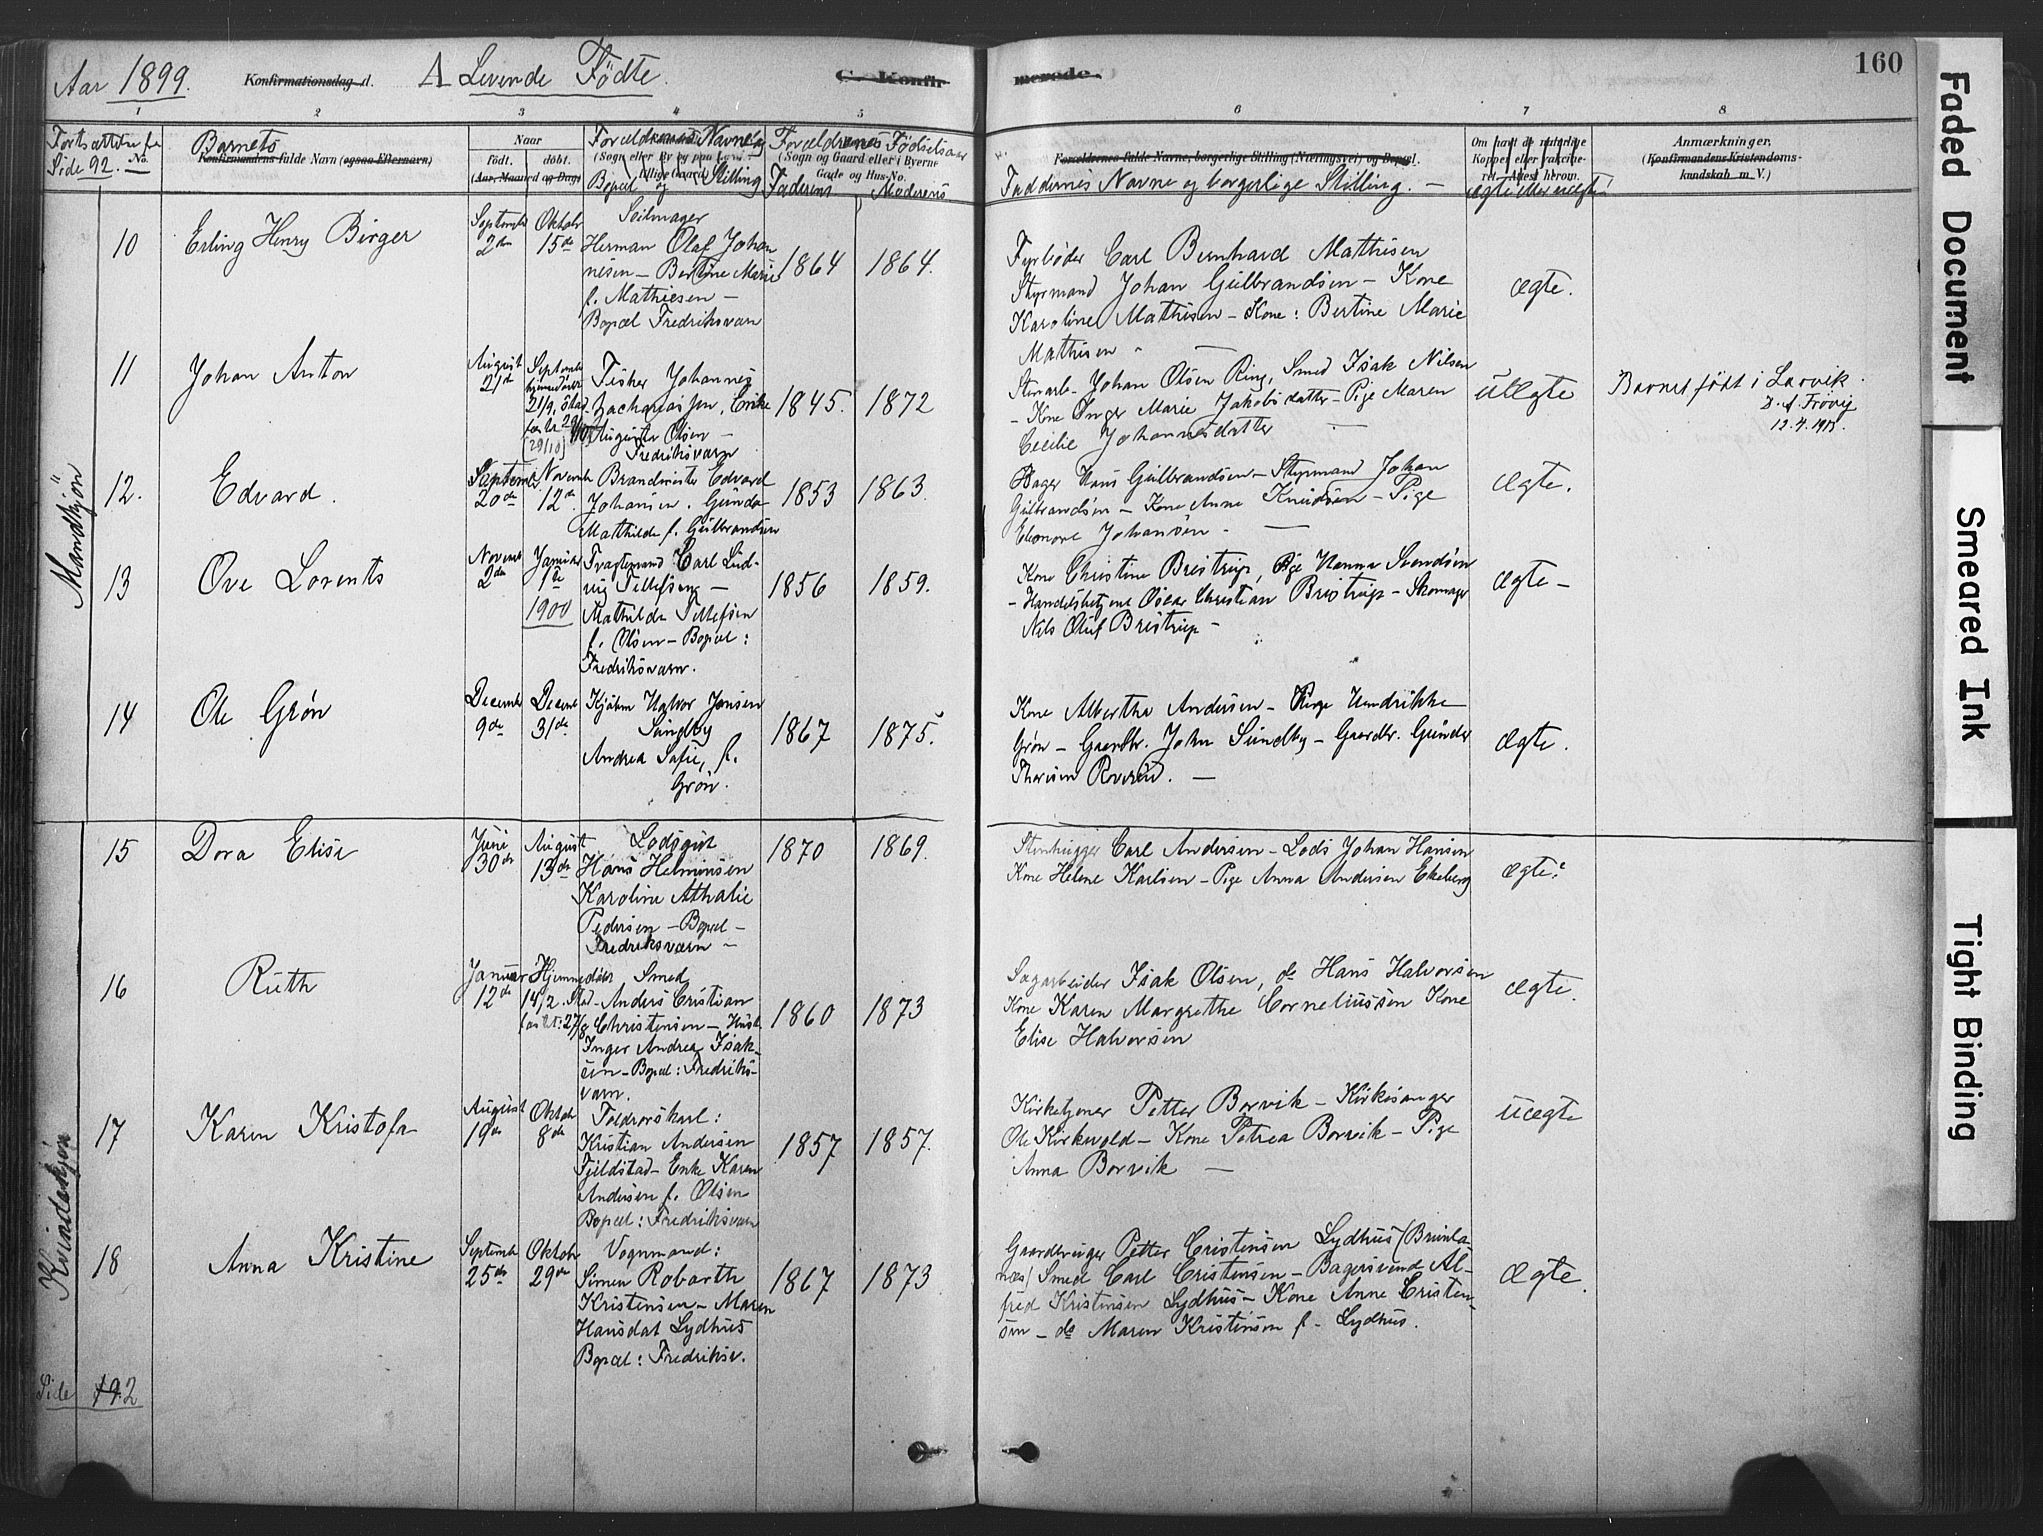 Aar 1899. Konfirmationsdag d. A Levende Födte. C. Konfir merede. 160
1 2 3 4 5 6 7 8
Fortsættelse fra Side 92. — No.
Barnets
Konfirmandens fulde Navn (ogsaa Efternavn)
Naar
født. døbt.
(Aar, Maaned og Dag)
Forældrenes Navne og
(Sogn eller By og
Bopæl og Stilling
Forældrenes Födselsaar
(Sogn og Gaard eller i Byerne
Gade og Hus-No.
Faderens Moderens
Forældrenes fulde Navne, borgerlige Stilling (Næringsvei) og Bopæl.
Faddernes Navne og borgerlige Stilling. —
Om havt de naturlige
Kopper eller vaccine-
ret. Attest herom.
ægte eller uægte
Anmærkninger.
(Konfirmandens Kristendoms-
kundskab m. V.)
Mandkjön
10 Erling Henry Birger
September 2den
Oktober 15de
Seilmager
Herman Olaf Johan
nesen — Bertine Marie
f. Mathiesen —
Bopæl Fredriksværn
1864 1864.
Fyrbøder Carl Bernhard Mathisen
Styrmand Johan Gulbrandsen — Kone
Karoline Mathisen — Kone: Bertine Marie
Mathisen — —
Ægte.
11 Johan Anton
August 21de
Septembr
hjemmedøbt
21/9, Stad-
fæstet
[29/10]
Fisker Johannes
Zachariassen, Enke
Augusta Olsen —
Fredriksværn
1845. 1872
Stenarb. Johan Olsen Ring, Smed Isak Nilsen
— Kone Inger Marie Jakobsdatter — Pige Maren
Cecilie Johannesdatter —
Uægte
Barnet födt i Larvik.
12. Edvard.
September 20de
November 12de
Brandmester Edvard
Johansen. Gunda
Mathilde f. Gulbrandsen
1853 1863.
Hans Gulbrandsen — Styrmand Johan
Gulbrandsen — Kone Anne Knudsen — Pige
Eleonore Johansen — —
Ægte.
13 Ove Lorents
Novemb. 2den
Januar 1ste
1900
Fragtemand Carl Lud-
vig Tellefsen —
Mathilde Tellefsen
f. Olsen — Bopæl:
Fredriksværn.
1856 1859.
Kone Christine Bristrup, Pige Hanna Svendsen
— Handelsbetjent Oscar Christian Bristrup — Skomager
Nils Oluf Bristrup —
Ægte —
14 Ole Grön
December 9de
Decemb. 31de
Kjøbm Halvor Jansen
Sundby
Andrea Sofie, f.
Grön.
1867 1875.
Kone Albertha Andersen — Pige Hendrikke
Grön — Gaardbr. John Sundby — Gaardbr. Gunder
Ægte.
Kvindekjön
15 Dora Elise
Juni 30de
August 13de
Lodsgut
Hans Helmensen
Karoline Athalie
Pedersen — Bopæl —
Fredriksværn —
1870 1869.
Stenhugger Carl Andersen — Lods Johan Hansen
Kone Helene Karlsen — Pige Anna Andersen Ekeberg
Ægte.
16 Ruth
Januar 12de
Hjemmedøbt
14/2 Stad-
fæstet: 27/8
Smed
Anders Cristian
Christensen — Hust.
Inger Andrea Isak-
sen — Bopæl: Fredriks-
værn.
1860 1873
Sagarbeider Isak Olsen, do Hans Halvorsen
Kone Karen Margrethe Corneliussen Kone
Elise Halvorsen
Ægte.
17 Karen Kristofa
August 19de
Oktob. 8de
Toldrorskarl:
Kristian Andersen
Fjeldstad — Enke Karen
Andersen f. Olsen
Bopæl: Fredriksværn
1857 1857.
Kirketjener Petter Borvik — Kirkesanger
Ole Kirkevold — Kone Petrea Borvik — Pige
Anna Borvik —
Uægte
18 Anna Kristine
September 25de
Oktober 29de
Vognmand:
Simen Robarth
Kristensen — Maren
Hansdat Lydhus
Bopæl: Fredriksv.
1867 1873
Gaardbruger Petter Cristensen Lydhus (Brunla-
næs) Smed Carl Cristensen — Bagersvend Al-
fred Kristensen Lydhus — Kone Anne Cristen-
sen — do Maren Kristensen f. Lydhus.
Ægte.
Side 192
Faded Document
Smeared Ink
Tight Binding